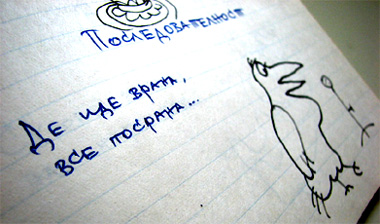 Последователност
Де иде врана,
все посрана...